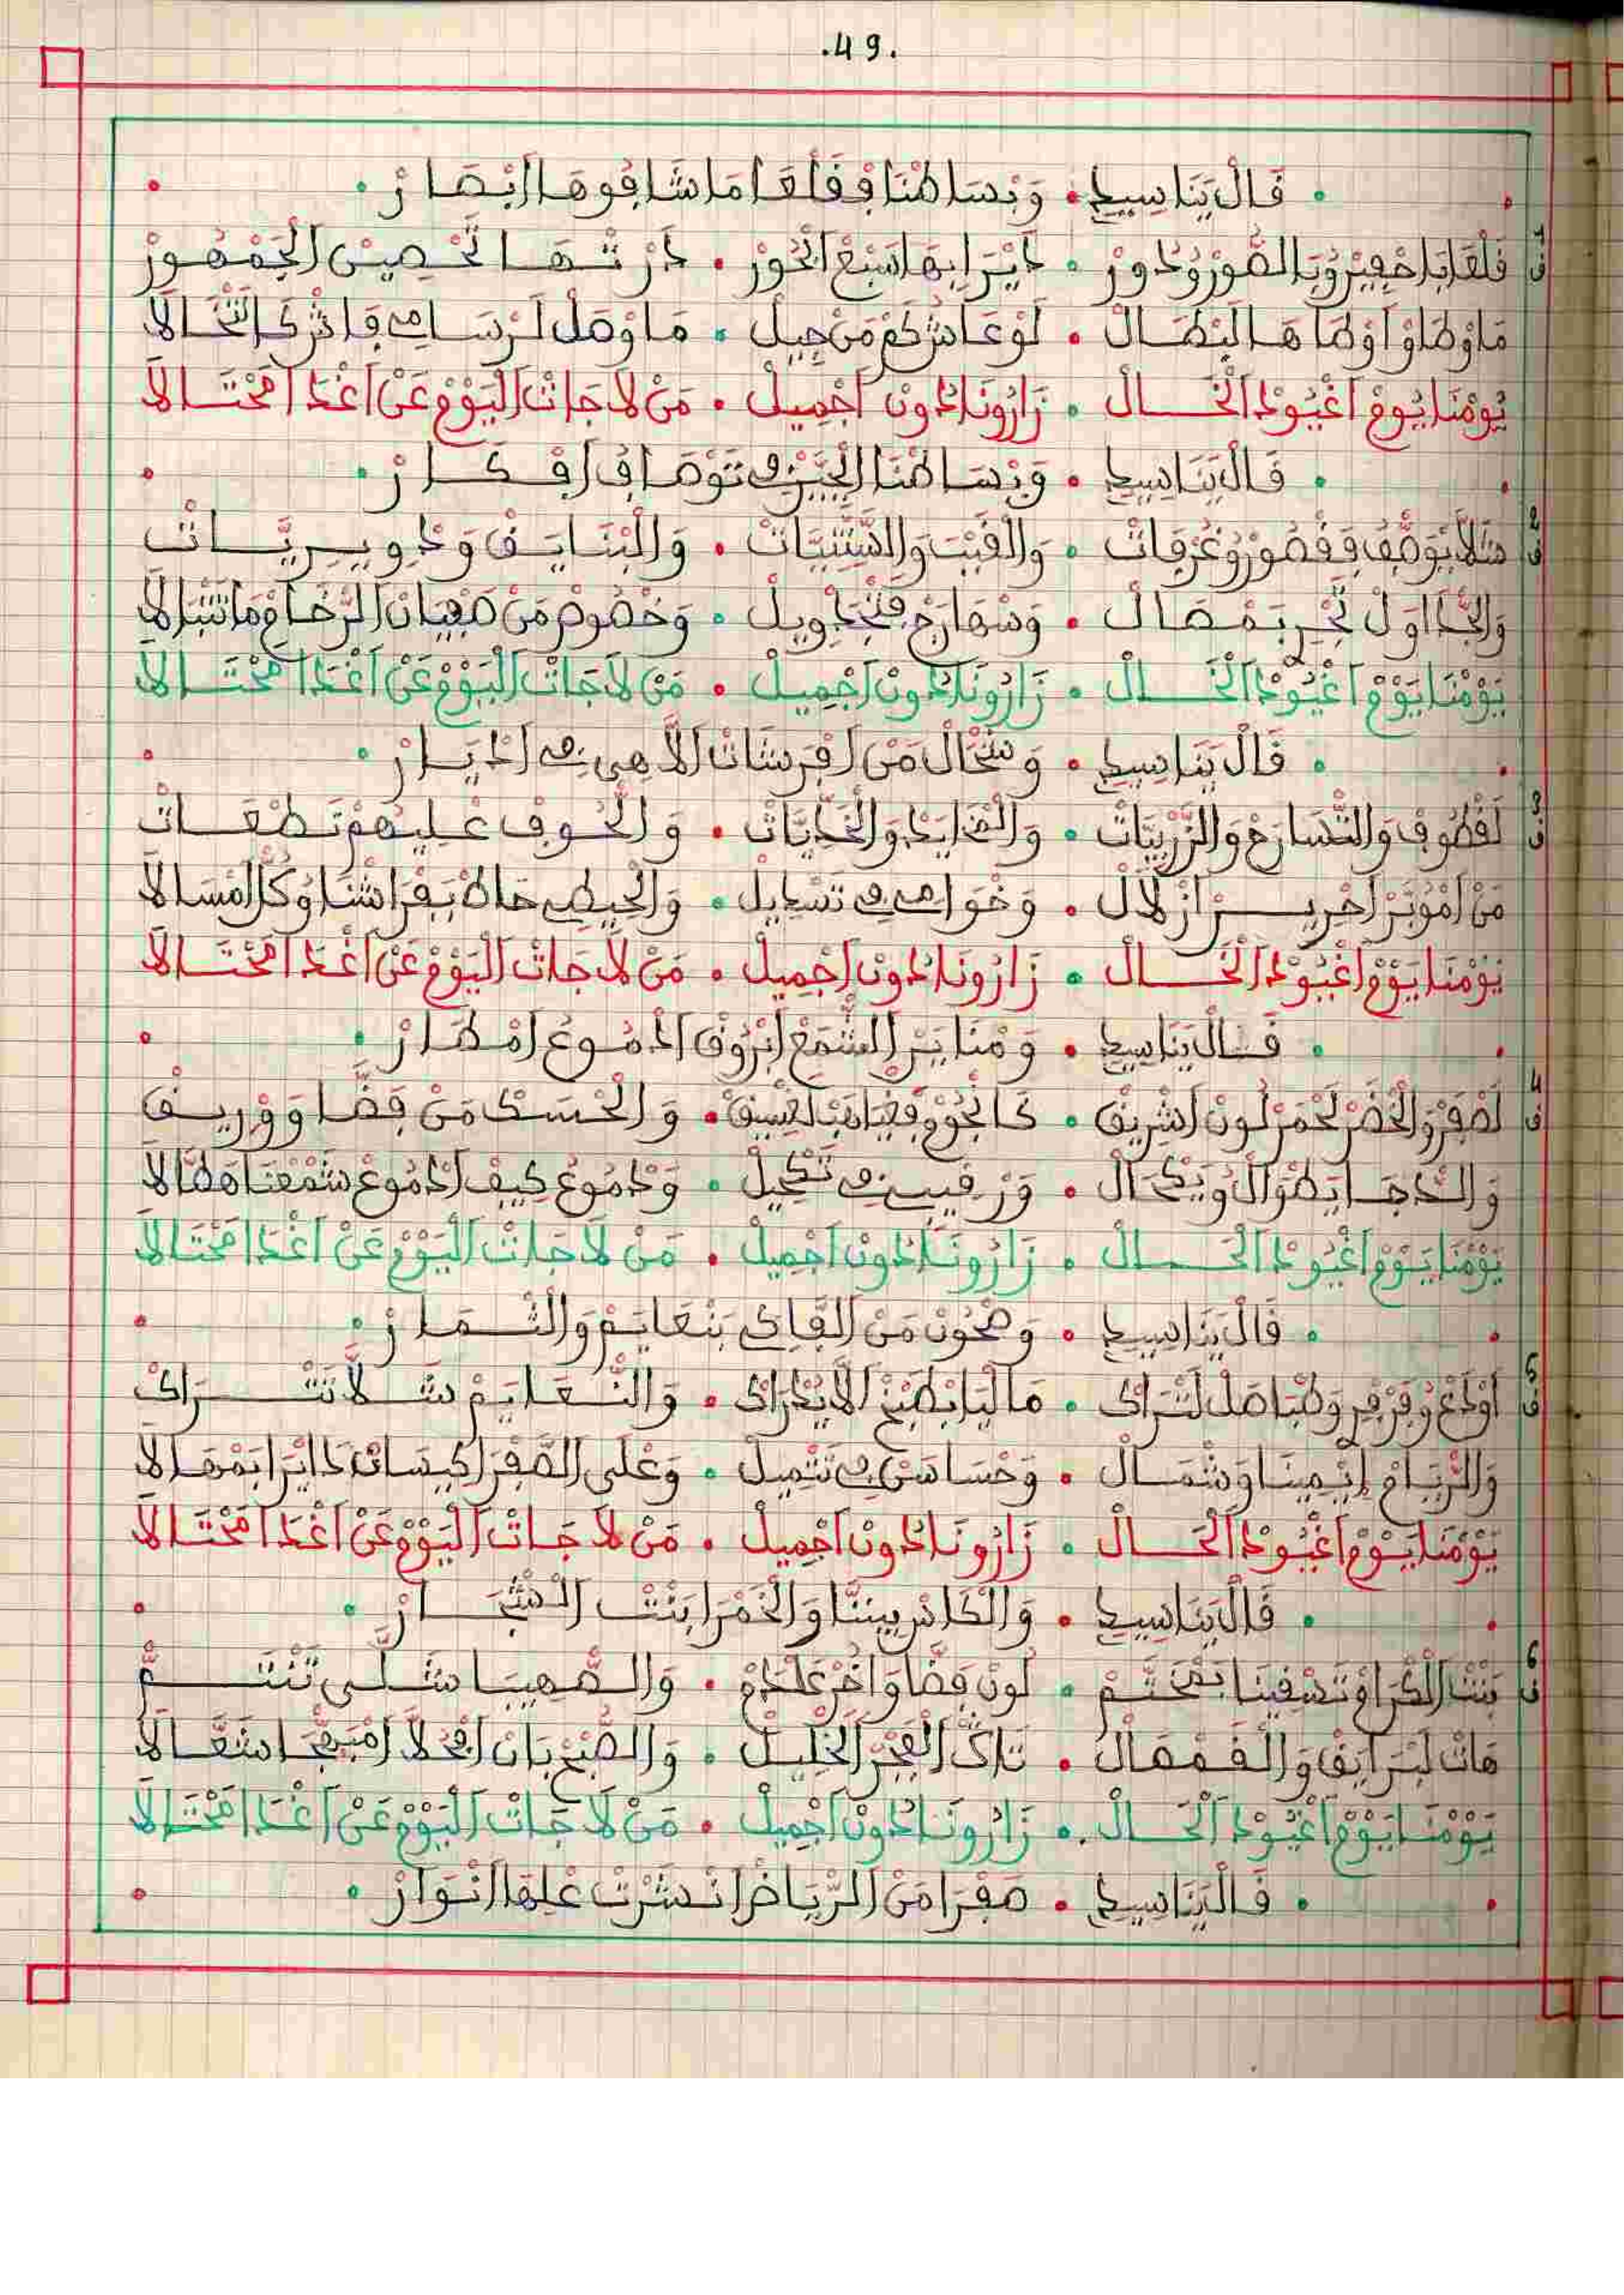 .49.
قَالْ يَنَاسِيدِي • وَبْسَاطْنَا فْقَلْعَا مَا شَافُوهَا ابْصَارْ •
ف1 قَلْعَا بَاحْفِيرْ وُبَالصُّورْ وُدُورْ • دَايْرَا بِهَا سَبْعَ ابْحُورْ • دَارْتْهَا تَحْصِينْ الْجَمْهُورْ
مَا وْطَاوْا اوْطَاهَا الَبْطَالْ • لَوْ عَاشْ كَمْ مَنْ جِيلْ • مَا وْصَلْ لَرْسَامِي فَاشْ كَا نَتْخَالَا
يُومْنَا يُومْ اغْيُودْ الْحَالْ • زَارُونَا دُونْ اجْمِيلْ • مَنْ لَا جَاتْ الْيُومْ عَنْ اغْدَا مَحْتَالَا
قَالْ يَنَاسِيدِي • وَبْسَاطْنَا الْحَبْرْ فِي تَوْصَافُ افْكَارْ •
ف2 شَلَّا يُوَصَّفْ فَقْصُورْ وُغُرْفَاتْ • وَالْقُبَّبْ وَالشَّتْبِيَّاتْ • وَالْبْنَايَقْ وَدْوِيرِيَّاتْ
وَالْجْدَاوَلْ تَجْرِي بَمْصَالْ • وَسْهَارَجْ فَتْجْدْوِيلْ • وَخْصُوصْ مَنْ صَفْيَانْ الرْخَامْ مَا تَتْبَالَا
يَوْمْنَا يَوْمْ اغْيُودْ الْحَالْ • زَارُونَا دُونْ اجْمِيلْ • مَنْ لَا جَاتْ الْيَوْمْ عَنْ اغْدَا مَحْتَالَا
قَالْ يَنَاسِيدِي • وَشْحَالْ مَنْ افْرَشَاتْ الَاهِي فِي ادْيَارْ •
ف3 لَقْطُوفْ وَالتْسَارَحْ وَالزَّرْبِيَّاتْ • وَالْمْخَايَدْ وَالْخَدِّيَّاتْ • وَالْحُوفْ عْلِيهُمْ تَطْعَاتْ
مَنْ امُوبَّرْ احْرِيرْ ازْلَالْ • وَخْوَامِي فِي تَسْدِيلْ • وَالْحِيطِي حَاطْ بَفْرَاشْنَا وُكُلْ امْسَالَا
يُومْنَا يَوْمْ اغْيُودْ الْحَالْ • زَارُونَا دُونْ اجْمِيلْ • مَنْ لَا جَاتْ الْيَوْمْ عَنْ اغْدَا مَحْتَالَا
قَالْ يَنَاسِيدِي • وَمْنَايَرْ الشْمَعْ ابْرُوقْ الدْمُوعْ امْطَارْ •
ف4 لَصْفَرْ وَالْخْضَرْ لَحْمَرْ لُونْ اشْرِيقْ • كَانْجُومْ فَغْيَاهَبْ لَغْسِيقْ • وَالْحْسَكْ مَنْ فَضَّا وَوْرِيقْ
وَالدْجَا يَطْوَالْ وُيَكْحَالْ • وَرْقِيبِي فِي تَنْكِيلْ • وَدْمُوعُ كِيفْ ادْمُوعْ شَمْعْنَا هَطَّالَا
يَوْمْنَا يَوْمْ اغْيُودْ الْحَالْ • زَارُونَا دُونْ اجْمِيلْ • مَنْ لَا جَاتْ الْيَوْمْ عَنْ اغْدَا مَحْتَالَا
قَالْ يَنَاسِيدِي • وَصْحُونْ مَنْ الْفَاكِي بَنْعَايَمْ وَالثْمَارْ •
ف5 اوْدَعْ وُفَرْفِرْ وَطْبَاصَلْ لَتْرَاكْ • مَالْيَا بَطْبَخْ الَايْدْرَاكْ • وَالنّْعَايَمْ شَلَّا تَتْرَاكْ
وَالرْيَامْ إِيْمِينَا وَشْمَالْ • وَحْسَاسَنْ فِي تَتْمِيلْ • وَعْلَى الصّْفَرْ كِيسَانْ دَايْرَا بَمْهَالَا
يَوْمْنَا يَوْمْ اغْيُودْ الْحَالْ • زَارُونَا دُونْ اجْمِيلْ • مَنْ لَا جَاتْ الْيَوْمْ عَنْ اغْدَا مَحْتَالَا
قَالْ يَنَاسِيدِي • وَالْكَاسْ بِينَنَّا وَالْخَمْرَا بَنْتْ الشْجَارْ •
ف6 بَنْتْ الْكْرَامْ تَسْقِينَا بَمْخَتَّمْ • لُونْ فَضَّا وَاخُرْ عَنْدَمْ • وَالصَّهْبَا شَلَّى تَنْتَمَّ
هَاتْ لَبْرَايَقْ وَالْقَمْعَالْ • تَاكْ الْفْجَرْ الْخْلِيلْ • وَالصّْبَحْ بَانْ افْحُلَّا امْبَهْجَا شَعَّالَا
يَوْمْنَا يَوْمْ اغْيُودْ الْحَالْ • زَارُونَا دُونْ اجْمِيلْ • مَنْ لَا جَاتْ الْيَوْمْ عَنْ اغْدَا مَحْتَالَا
قَالْ يَنَاسِيدِي • صَفْرَا مَنْ الرْيَاضْ انْشَرْتْ عْلِهَا انْوَارْ •